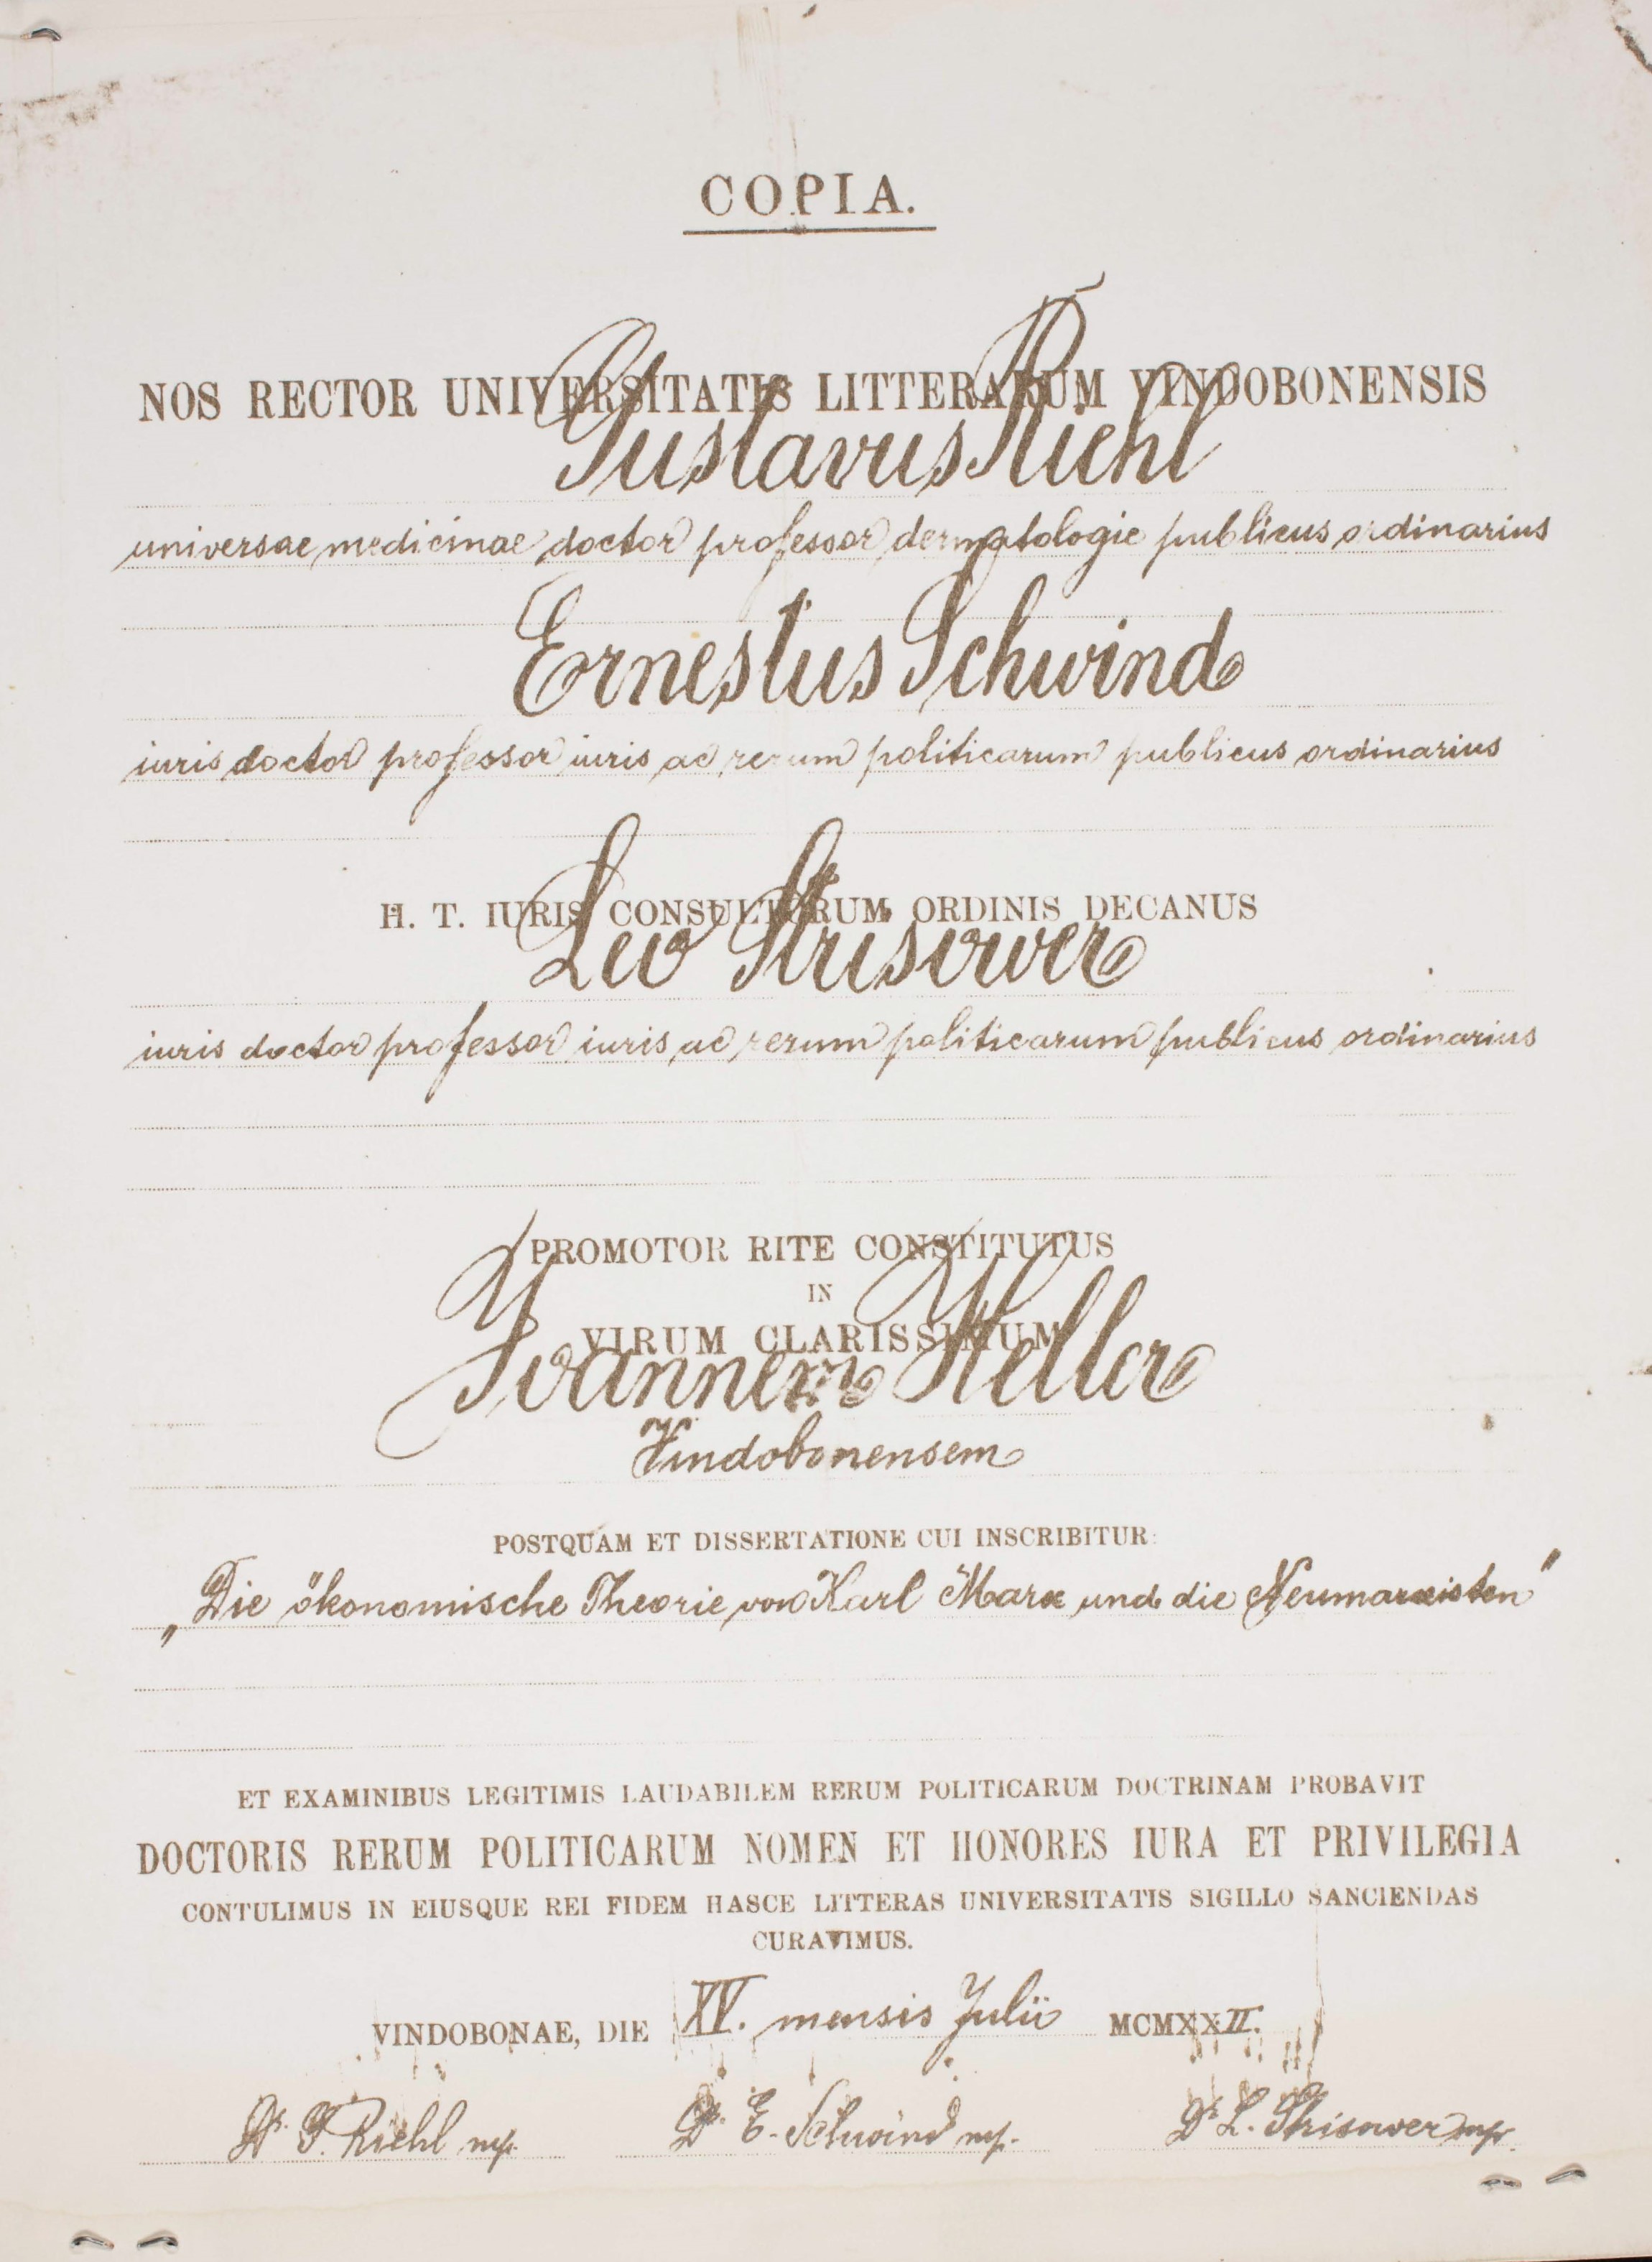 COPIA.
NOS RECTOR UNIVERSITATIS LITTERARUM VINDOBONENSIS
Gustavus Riehl
universae medicinae doctor professor dermatologie publicus ordinarius
Ernestus Schwind
iuris doctor professor iuris ac rerum politicarum publicus ordinarius
H. T. IURIS CONSULTORUM ORDINIS DECANUS
Leo Strisower
iuris doctor professor iuris ac rerum politicarum publicus ordinarius
PROMOTOR RITE CONSTITUTUS
IN
VIRUM CLARISSIMUM
Ioannem Keller
Vindobonensem
POSTQUAM ET DISSERTATIONE CUI INSCRIBITUR:
„Die ökonomische Theorie von Karl Marx und die Neumarxisten"
ET EXAMINIBUS LEGITIMIS LAUDABILEM RERUM POLITICARUM DOCTRINAM PROBAVIT
DOCTORIS RERUM POLITICARUM NOMEN ET HONORES IURA ET PRIVILEGIA
CONTULIMUS IN EIUSQUE REI FIDEM HASCE LITTERAS UNIVERSITATIS SIGILLO SANCIENDAS
CURAVIMUS.
VINDOBONAE, DIE XV. mensis Julii MCMXXII.
Dr. G. Riehl mp. Dr. E. Schwind mp. Dr. L. Strisower mp.